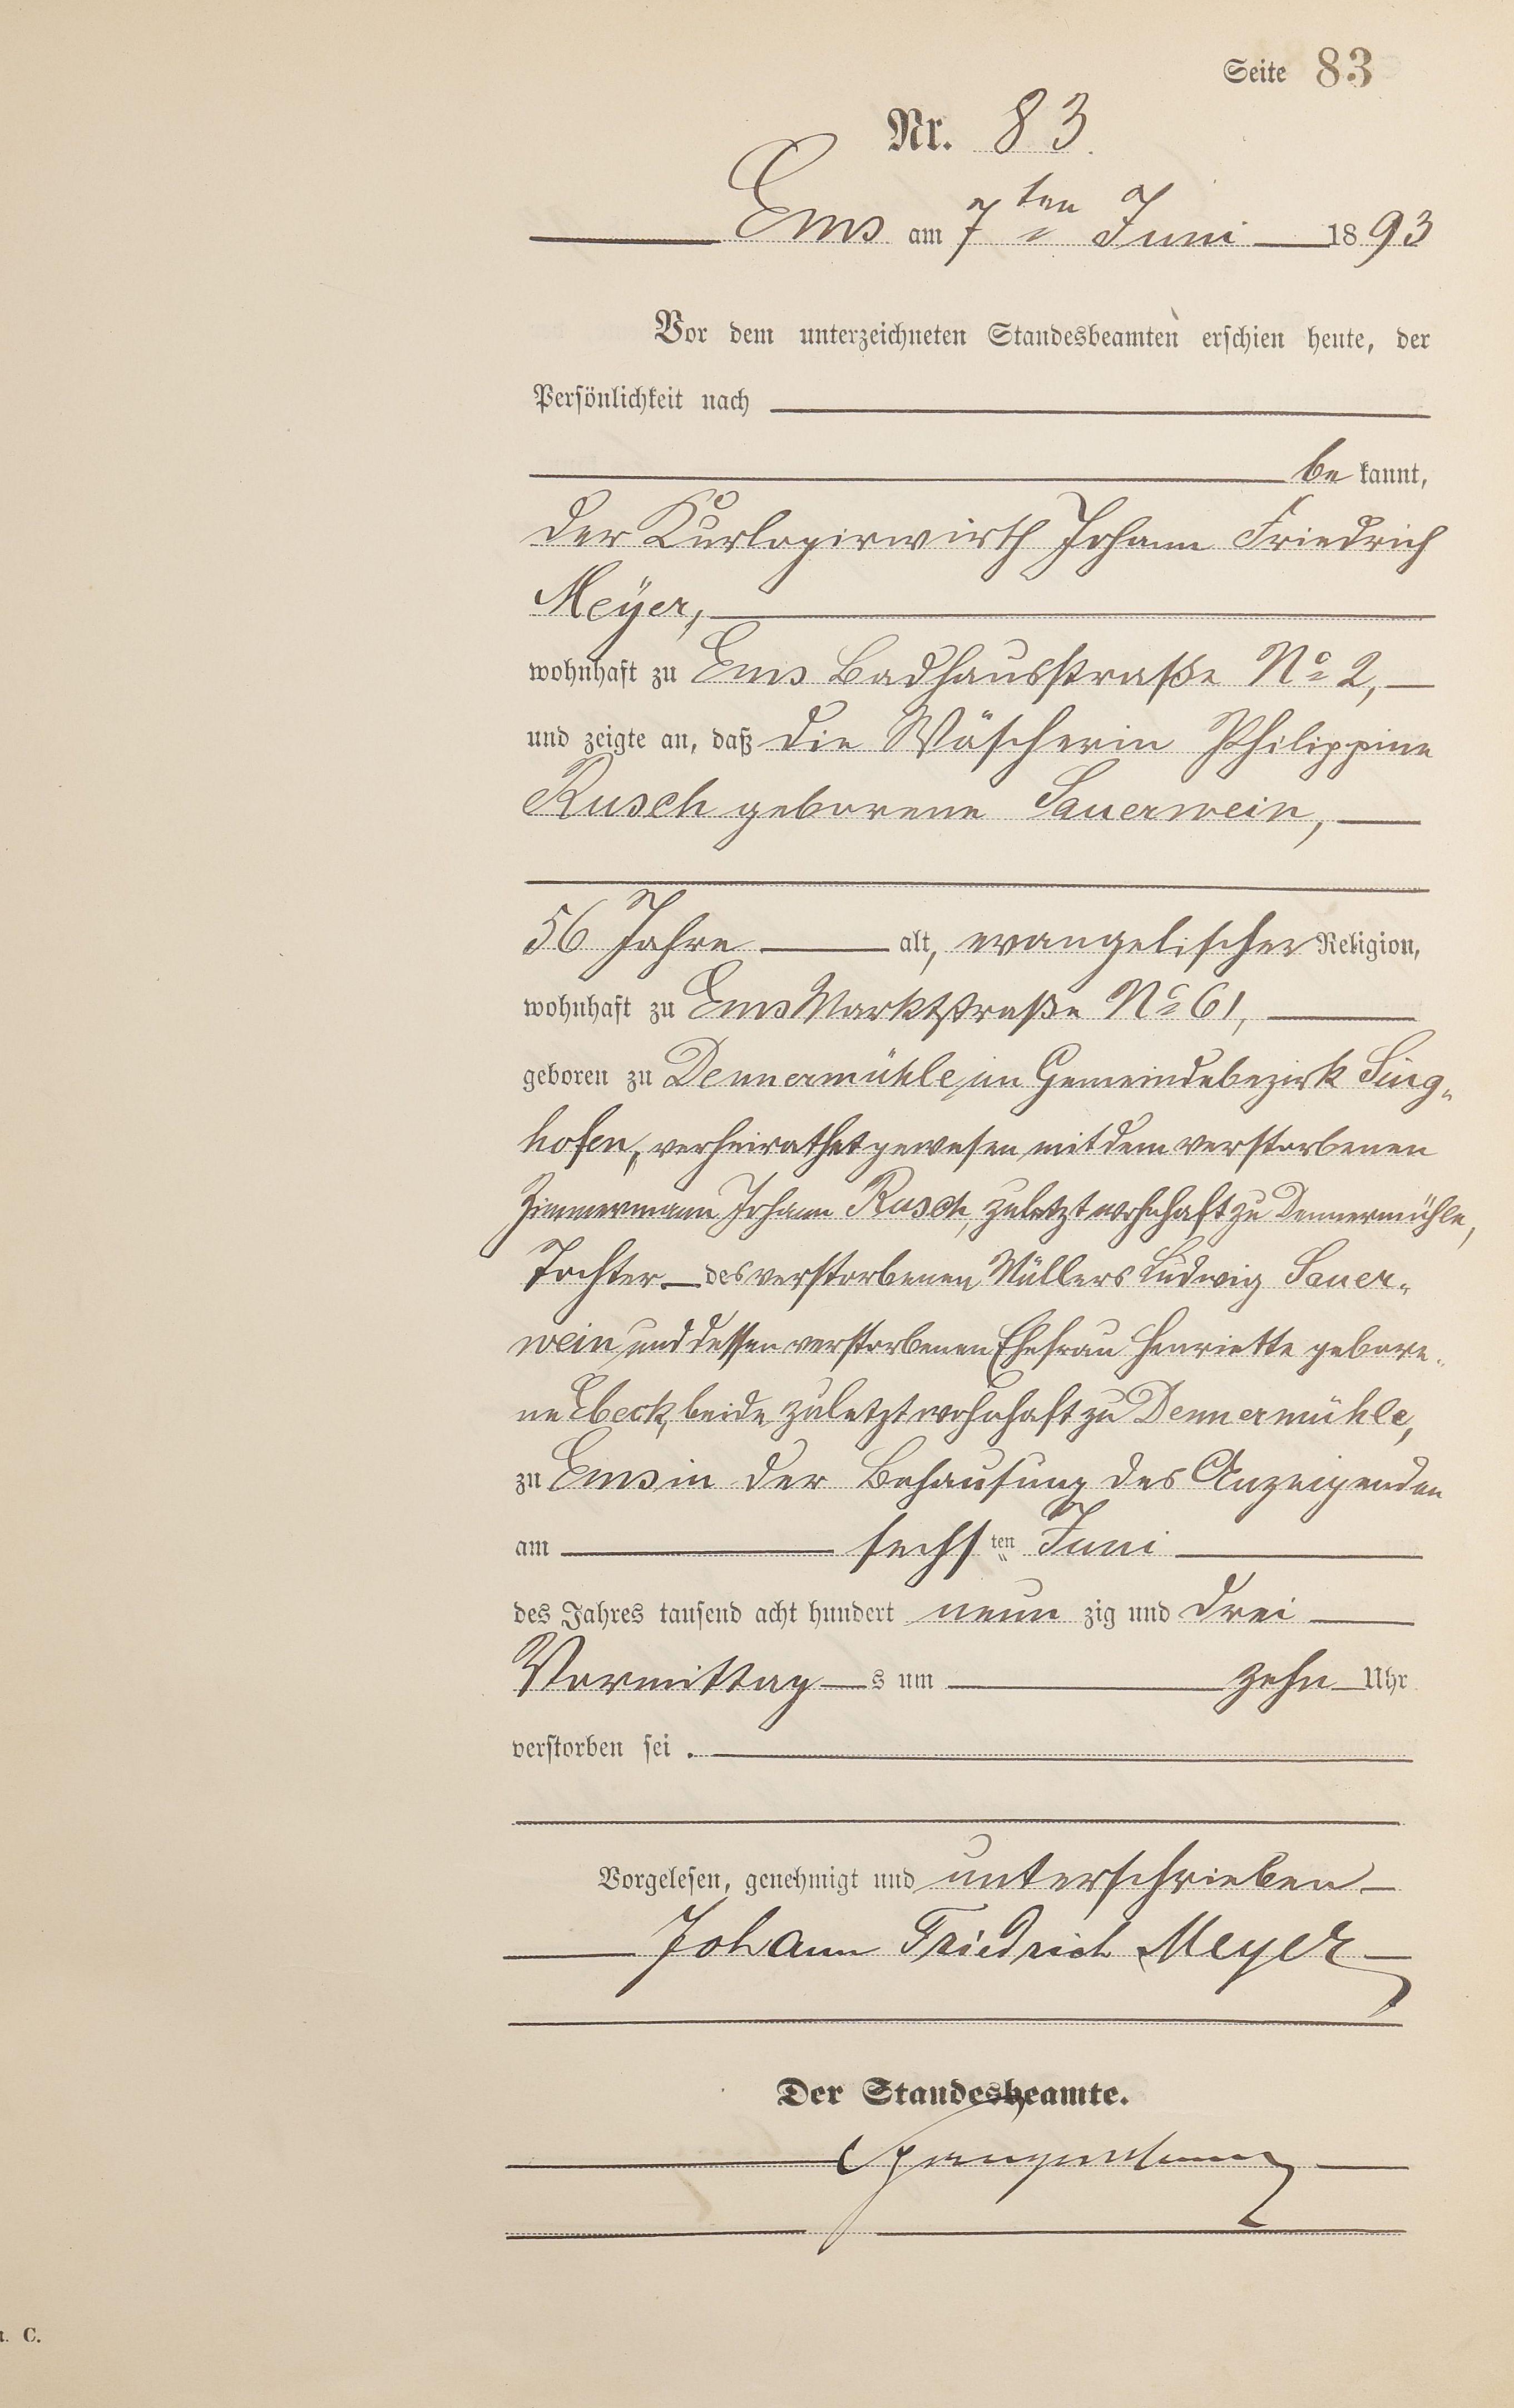 Seite 83
Nr. 83.
Ems am 7ten Juni 1893
Vor dem unterzeichneten Standesbeamten erschien heute, der
Persönlichkeit nach
bekannt,
der Kurlogirwirth Johann Friedrich
Meÿer,
wohnhaft zu Ems Badhausstraße No 2,
und zeigte an, daß die Wäscherin Philippine
Rusch geborene Sauerwein,
56 Jahre alt, evangelischer Religion,
wohnhaft zu Ems Marktstraße No 61,
geboren zu Dennermühle im Gemeindebezirk Sing-
hofen, verheirathet gewesen mit dem verstorbenen
Zimmermann Johann Rusch, zuletzt wohnhaft zu Dennermühle,
Tochter des verstorbenen Müllers Ludwig Sauer-
wein und dessen verstorbenen Ehefrau Henriette gebore-
ne Ebeck, beide zuletzt wohnhaft zu Dennermühle,
zu Ems in der Behausung des Anzeigenden
am sechsten Juni
des Jahres tausend acht hundert neunzig und drei
Vormittags um zehn Uhr
verstorben sei.
Vorgelesen, genehmigt und unterschrieben
Johann Friedrich Meyer
Der Standesbeamte.
C.